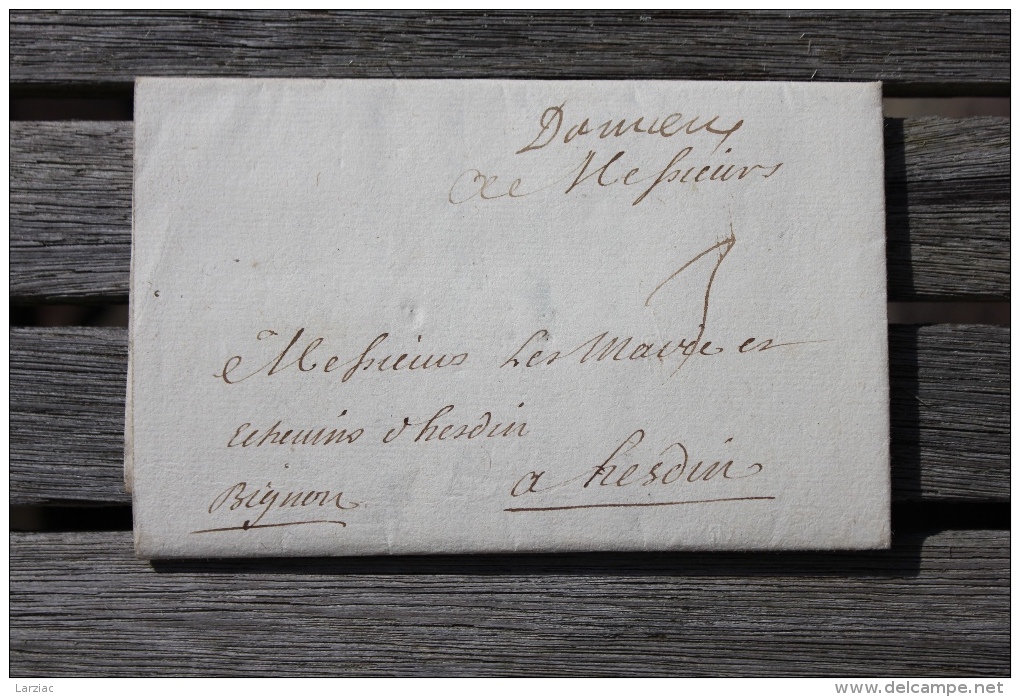 Damiens
A Messieurs
Messieurs Les Maire et
Echevins d'hesdin
a hesdin
Bignon
Larziac
www.delcampe.net